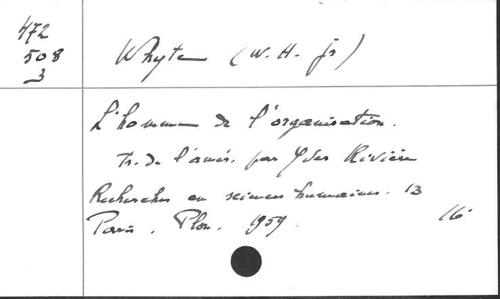 472
508
3
Whyte (W. H. jr)
L'homme de l'organisation.
Tr. de l'amér. par Yves Rivière
Recherches en sciences humaines. 13
Paris. Plon. 1959. 16°